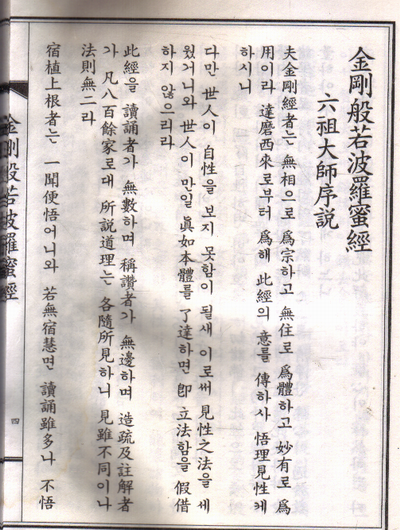 金剛般若波羅蜜經
六祖大師序説
夫金剛經者는 無相으로 爲宗하고 無住로 爲體하고 妙有로 爲
用이라 達磨西來로부터 爲해 此經의 意를 傳하사 悟理見性케
하시니
다만 世人이 自性을 보지 못함이 될새 이로써 見性之法을 세
웠거니와 世人이 만일 眞如本體를 了達하면 卽 立法함을 假借
하지 않으리라
此經을 讀誦者가 無數하며 稱讚者가 無邊하며 造疏及註解者
가 凡八百餘家로대 所說道理는 各隨所見하니 見雖不同이나
法則無二라
宿植上根者는 一聞便悟어니와 若無宿慧면 讀誦雖多나 不悟
金剛般若波羅蜜經
四